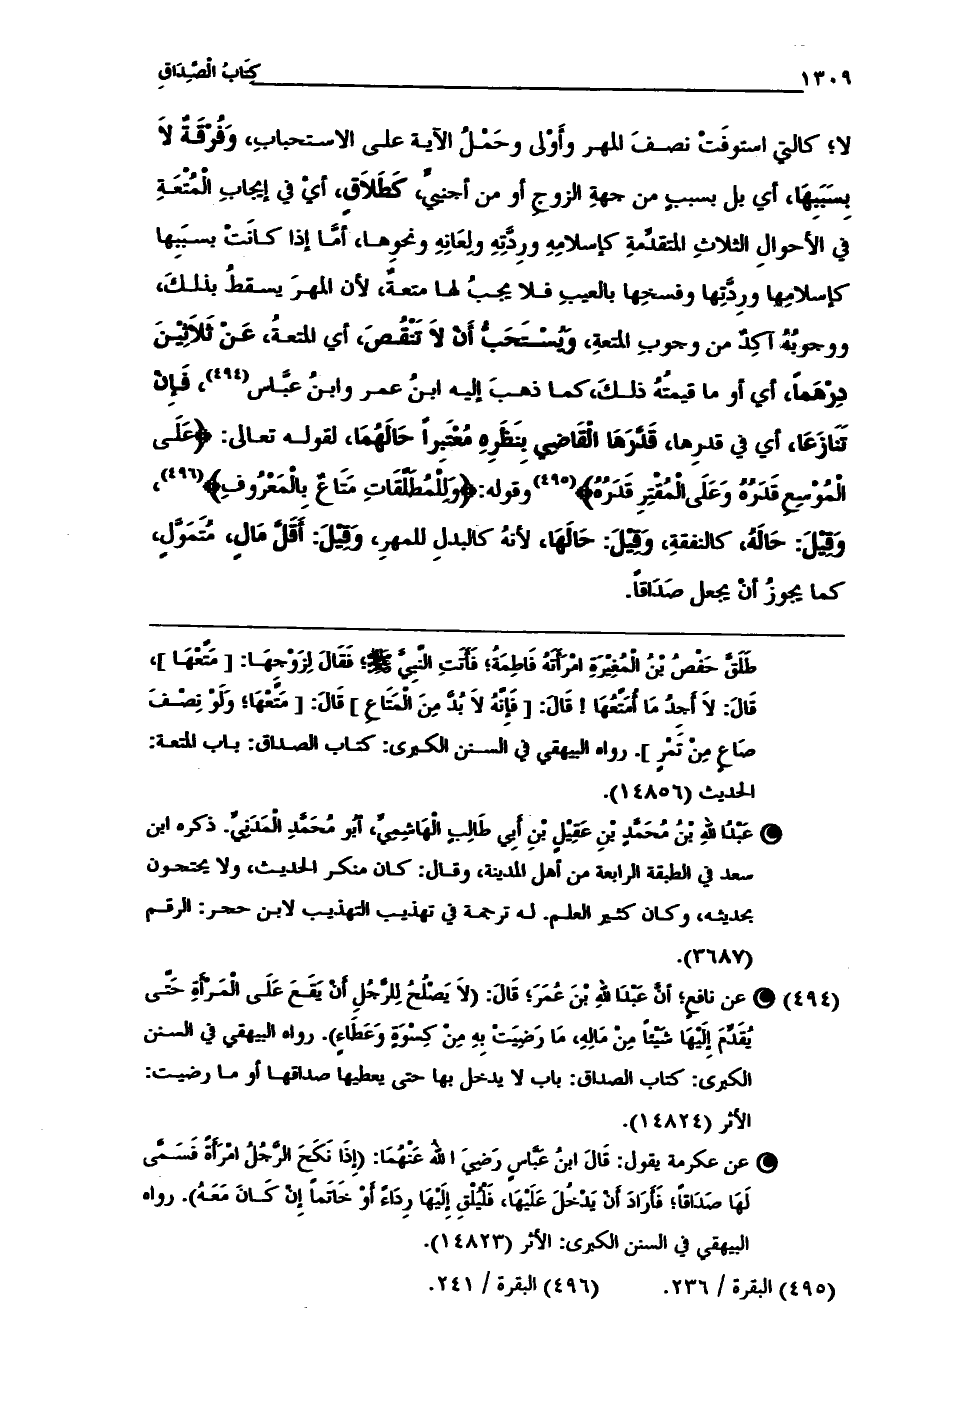 ١٣٠٩ كِتَابُ الْصَّدَاقِ
لا؛ كالتي استوفَتْ نصفَ المهر وأَوْلى وحَمْلُ الآية على الاستحبابِ، وَفُرْقَةٌ لاَ
بِسَبَبِهَا، أي بل بسببٍ من جهةِ الزوجِ أو من أجنبيٍّ، كَطَلاَقٍ، أيْ في إيجابِ الْمُتْعَةِ
في الأحوالِ الثلاثِ المتقدِّمةِ كإسلامِهِ وردَّتِهِ ولِعَانِهِ ونحوِها، أمَّا إذا كانَتْ بسبَبِها
كإسلامِها وردَّتِها وفسخِها بالعيبِ فلا يجبُ لها متعةٌ، لأن المهرَ يسقطُ بذلكَ،
ووجوبُهُ آكِدٌ من وجوبِ المتعةِ، وَيُسْتَحَبُّ أَنْ لاَ تَنْقُصَ، أي المتعةُ، عَنْ ثَلاَثِيْنَ
دِرْهَماً، أي أو ما قيمتُهُ ذلكَ، كما ذهبَ إليه ابنُ عمر وابنُ عبَّاس(٤٩٤)، فَإِنْ
تَنَازَعَا، أي في قدرِها، قَدَّرَهَا الْقَاضِي بِنَظَرِهِ مُعْتَبِراً حَالَهُمَا، لقولهِ تعالى: ﴿عَلَى
الْمُوْسِعِ قَدَرُهُ وَعَلَى الْمُقْتِرِ قَدَرُهُ﴾(٤٩٥) وقوله: ﴿وَلِلْمُطَلَّقَاتِ مَتَاعٌ بِالْمَعْرُوفِ﴾(٤٩٦)،
وَقِيْلَ: حَالَهُ، كالنفقةِ، وَقِيْلَ: حَالَهَا، لأنهُ كالبدلِ للمهرِ، وَقِيْلَ: أَقَلَّ مَالٍ، مُتَمَوَّلٍ،
كما يجوزُ أنْ يجعل صَدَاقاً.
طَلَقَّ حَفْصُ بْنُ الْمُغِيْرَةِ امْرَأَتَهُ فَاطِمَةَ؛ فَأَتَتِ النَّبِيَّ ﷺ؛ فَقَالَ لِزَوْجِهَا: [ مَتِّعْهَا ]،
قَالَ: لاَ أَجِدُ مَا أُمَتِّعُهَا ! قَالَ: [ فَإِنَّهُ لاَ بُدَّ مِنَ الْمَتَاعِ ] قَالَ: [ مَتِّعْهَا؛ وَلَوْ نِصْفَ
صَاعٍ مِنْ تَمْرٍ ]. رواه البيهقي في السنن الكبرى: كتاب الصداق: باب المتعة:
الحديث (١٤٨٥٦).
عَبْدُا للهِ بْنُ مُحَمَّدٍ بْنِ عَقِيْلِ بْنِ أَبِي طَالِبٍ الْهَاشِمِيُّ، أَبُو مُحَمَّدِ الْمَدَنِيُّ. ذكره ابن
سعد في الطبقة الرابعة من أهل المدينة، وقال: كان منكر الحديث، ولا يحتجون
بحديثه، وكان كثير العلم. له ترجمة في تهذيب التهذيب لابن حجر: الرقم
(٣٦٨٧).
(٤٩٤) عن نافع؛ أنَّ عَبْدَا للهِ بْنَ عُمَرَ؛ قَالَ: (لاَ يَصْلُحُ لِلرَّجُلِ أَنْ يَقَعَ عَلَى الْمَرْأَةِ حَتَّى
يُقَدِّمَ إِلَيْهَا شَيْئاً مِنْ مَالِهِ، مَا رَضِيَتْ بِهِ مِنْ كِسْوَةٍ وَعَطَاءٍ). رواه البيهقي في السنن
الكبرى: كتاب الصداق: باب لا يدخل بها حتى يعطيها صداقها أو ما رضيت:
الأثر (١٤٨٢٤).
عن عكرمة يقول: قَالَ ابنُ عَبَّاسٍ رَضِيَ ا للهُ عَنْهُمَا: (إِذَا نَكَحَ الرَّجُلُ امْرَأَةً فَسَمَّى
لَهَا صَدَاقاً؛ فَأَرَادَ أَنْ يَدْخُلَ عَلَيْهَا، فَلْيُلْقِ إِلَيْهَا رِدَاءً أَوْ خَاتَماً إِنْ كَانَ مَعَهُ). رواه
البيهقي في السنن الكبرى: الأثر (١٤٨٢٣).
(٤٩٥) البقرة / ٢٣٦. (٤٩٦) البقرة / ٢٤١.